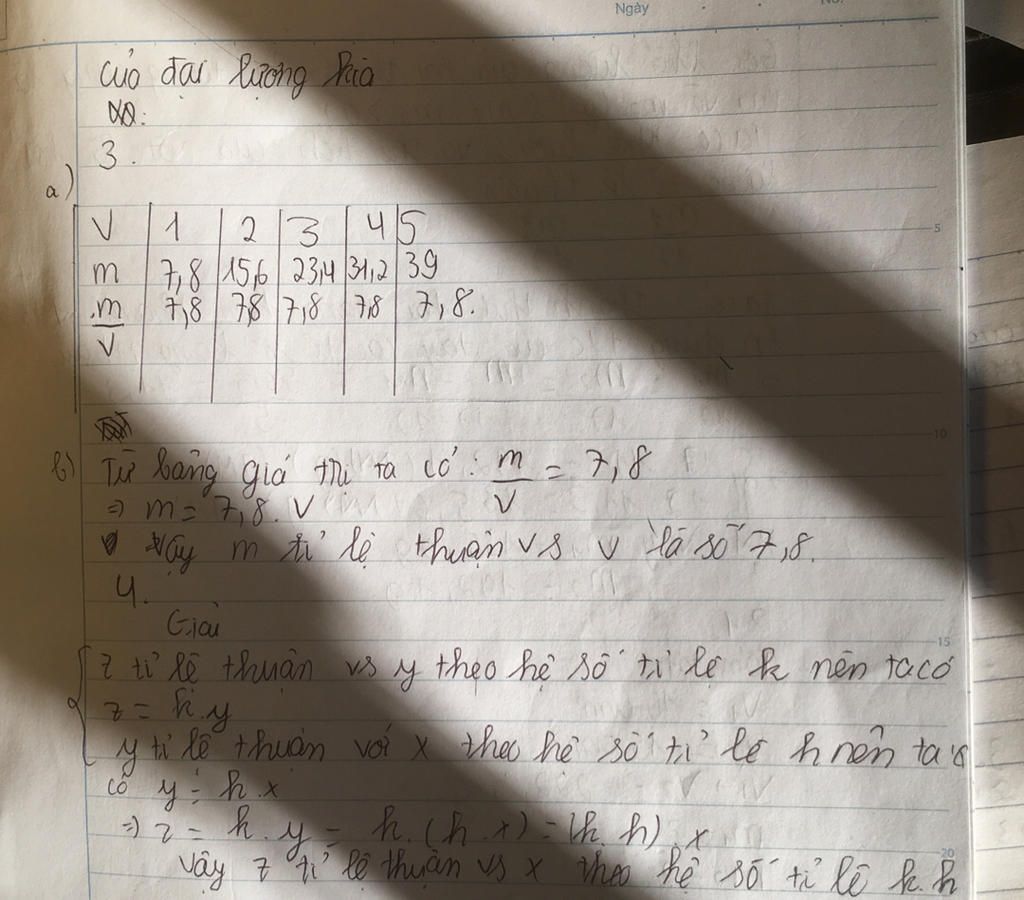 Ngày
No.
của đại lượng kia
3.
a)
V 1 2 3 4 5
m 7,8 15,6 23,4 31,2 39
m/V 7,8 7,8 7,8 7,8 7,8.
5
10
b) Từ bảng giá trị ta có: m/V = 7,8
=> m = 7,8. V
vậy m tỉ lệ thuận vs V là số 7,8.
4.
Giải
15
z tỉ lệ thuận vs y theo hệ số tỉ lệ k nên ta có
z = k.y
y tỉ lệ thuận với x theo hệ số tỉ lệ h nên ta
có y = h.x
=> z = k.y = k.(h.x) = (k.h).x
20
vậy z tỉ lệ thuận vs x theo hệ số tỉ lệ k.h